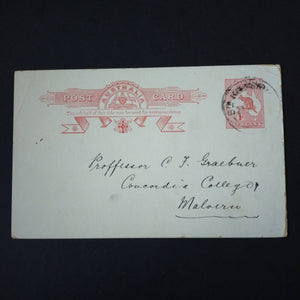 AUSTRALIA
POST CARD
The left half of this side may be used for correspondence.
Proffessor C F Graebner
Concordia College
Malvern